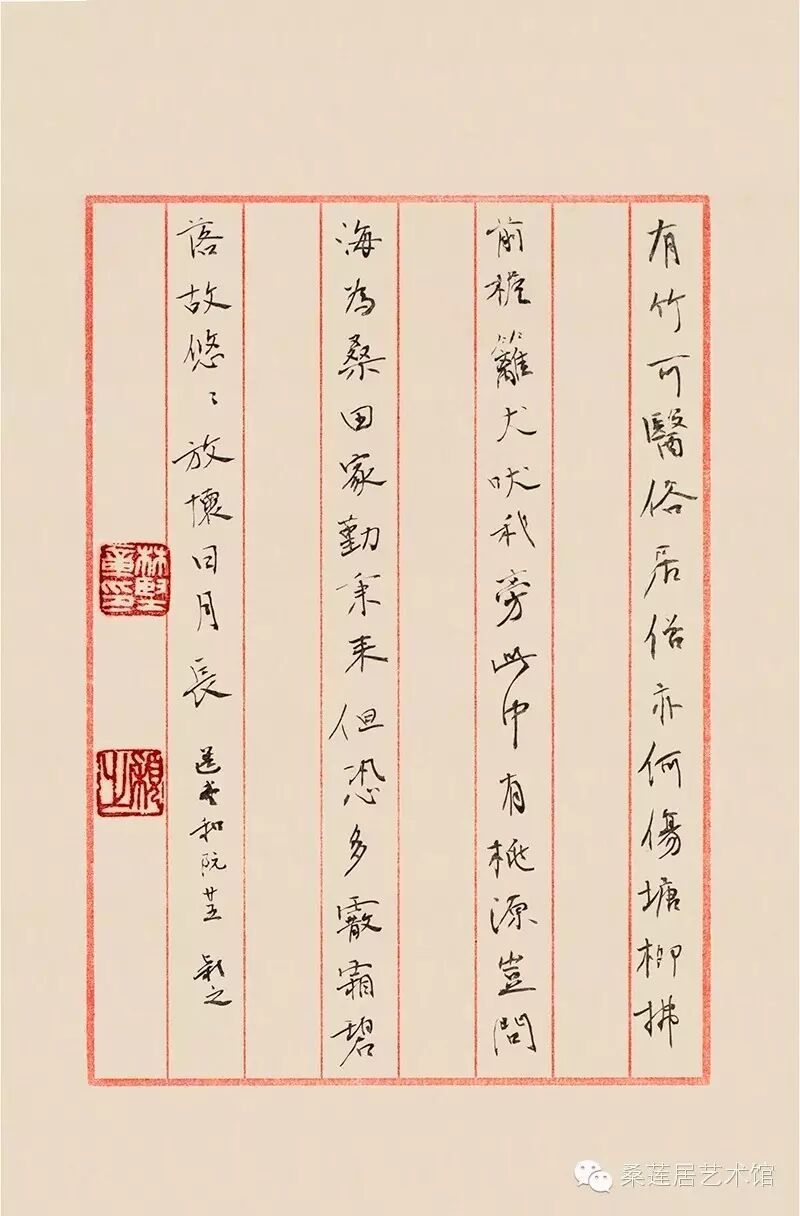 有竹可醫俗居俗亦何傷塘柳拂
前檐籬犬吠我旁此中有桃源豈問
海為桑田家勤秉耒但恐多霰霜碧
落故悠〻放懷日月長
選堂和阮廿五 穎之
穎之
桑莲居艺术馆